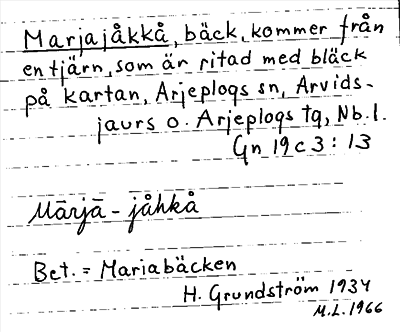 Marjajåkkå, bäck, kommer från
en tjärn, som är ritad med bläck
på kartan, Arjeplogs sn, Arvids-
jaurs o. Arjeplogs tg, Nb. l.
Gn 19 c 3 : 13
Mārjā - jåhkå
Bet. = Mariabäcken
H. Grundström 1934
M.L. 1966